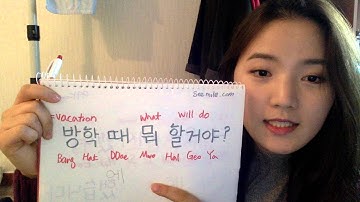 Seemile.com
=vacation What Will do
방학 때 뭐 할거야?
Bang Hak DDae Mwo Hal Geo Ya